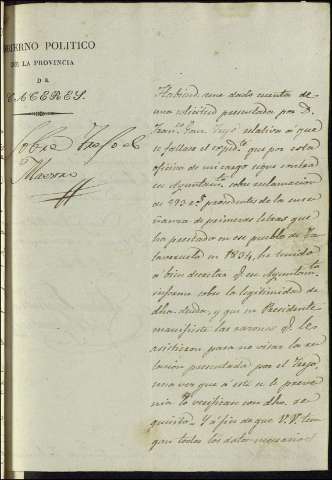 GOBIERNO POLITICO
DE LA PROVINCIA
DE
CACERES.
Sobre Trejo el
Maestro
Habiendoseme dado cuenta de
una solicitud presentada por D.
Juan Trejo relativa á que
se fallara el expedte que por esta
oficina de mi cargo sigue contra
su Ayuntamto sobre reclamacion
de 992 rs procedentes de la ense
ñanza de primeras letras que
ha prestado en ese pueblo de Ta
laveruela en 1834, he tenido
á bien decretar q. ese Ayuntamto
informe sobre la legitimidad de
dha deuda, y que su Presidente
manifieste las razones q. le
asistieron para no visar la re
lacion presentada por el Trejo,
una vez que á este se le preve
nia lo verificara con dho re
quisito. Y á fin de que V.V. ten
gan todos los datos necesarios